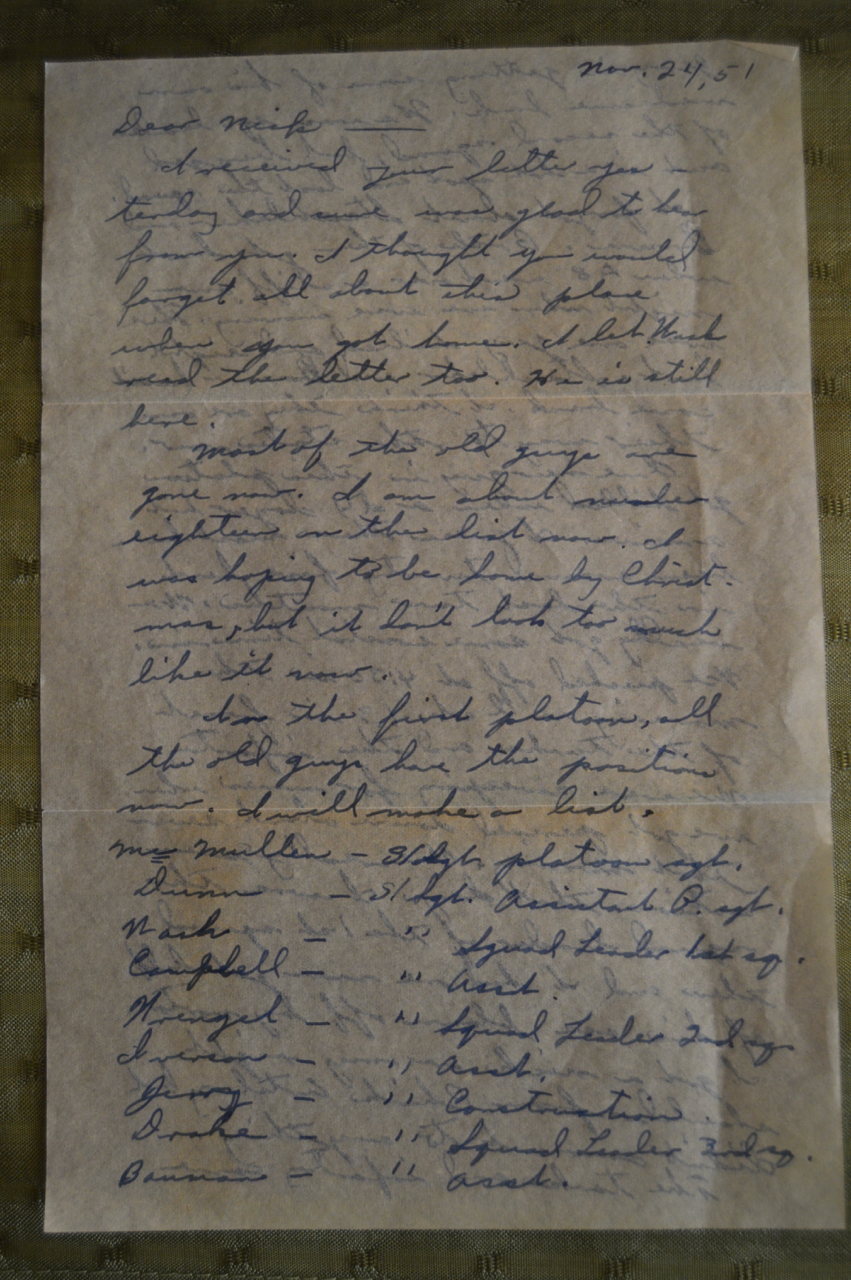 Nov. 24, 51
Dear Nick —
I received your letter yes-
terday and sure was glad to hear
from you. I thought you would
forget all about this place
when you got home. I let Nash
read the letter too. He is still
here.
Most of the old guys are
gone now. I am about number
eighteen on the list now. I
was hoping to be home by Christ-
mas, but it don't look too much
like it now.
In the first platoon, all
the old guys have the position
now. I will make a list.
McMullen – S/Sgt. platoon sgt.
Dunn – S/Sgt. Assistant P. sgt.
Nash – " Squad Leader 1st sq.
Campbell – " Asst.
Wrengel – " Squad Leader 2nd sq
Iverson – " Asst.
Jerry – " Construction
Drake – " Squad Leader 3rd sq.
Bauman – " Asst.